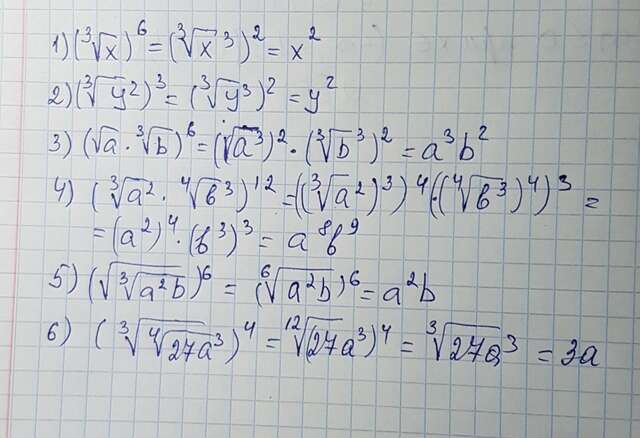 1) (∛x)⁶ = (∛x³)² = x²
2) (∛y²)³ = (∛y³)² = y²
3) (√a · ∛b)⁶ = (√a³)² · (∛b³)² = a³b²
4) (∛a² · ∜b³)¹² = ((∛a²)³)⁴ · ((∜b³)⁴)³ =
= (a²)⁴ · (b³)³ = a⁸b⁹
5) (√∛a²b)⁶ = (⁶√a²b)⁶ = a²b
6) (∛∜27a³)⁴ = ¹²√(27a³)⁴ = ∛27a³ = 3a